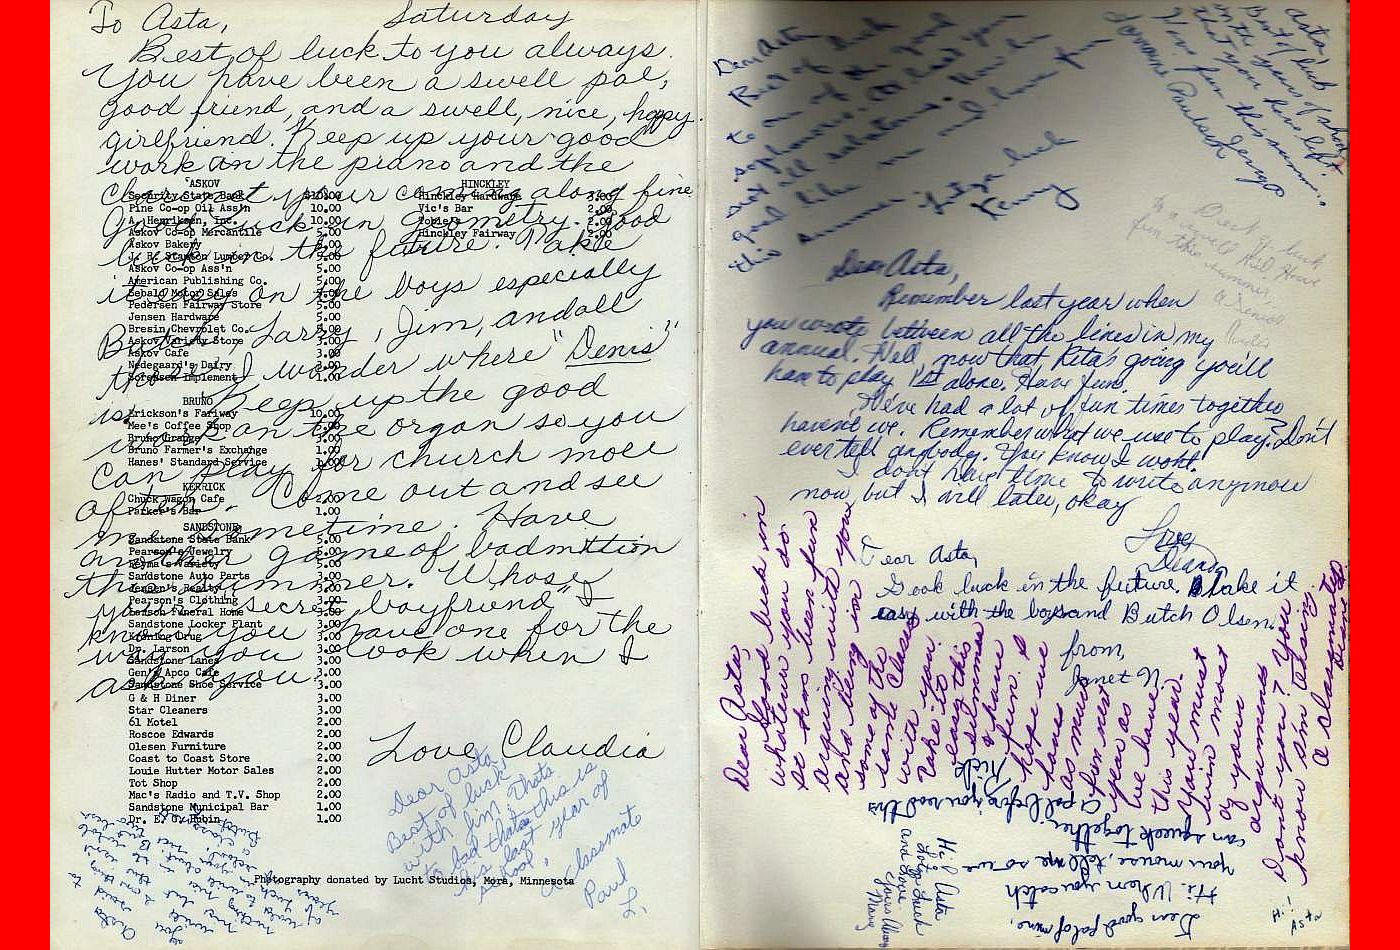 To Asta, Saturday
Best of luck to you always.
You have been a swell pal,
good friend, and a swell, nice, happy
girlfriend. Keep up your good
work on the piano and the
clarinet your coming along fine
Good luck in geometry. Good
luck in the future. Take
it easy on the boys especially
Butch, Larry, Jim, and all
those. I wonder where "Denis"
is. Keep up the good
work on the organ so you
can play for church more
often. Come out and see
me sometime. Have
another game of badmittion
this summer. Whose
your secret boyfriend" I
know you have one for the
way you look when I
ask you.
Love, Claudia
ASKOV
Security State Bank $10.00
Pine Co-op Oil Ass'n 10.00
A. Henriksen, Inc. 10.00
Askov Co-op Mercantile 5.00
Askov Bakery 5.00
J. R. Stanton Lumber Co. 5.00
Askov Co-op Ass'n 5.00
American Publishing Co. 5.00
Sebald Motor Sales 5.00
Pedersen Fairway Store 5.00
Jensen Hardware 5.00
Bresin Chevrolet Co. 5.00
Askov Variety Store 3.00
Askov Cafe 3.00
Nedegaard's Dairy 2.00
Sorensen Implement 1.00
BRUNO
Erickson's Fairway 10.00
Mee's Coffee Shop 5.00
Bruno Grange 3.00
Bruno Farmer's Exchange 1.00
Hanes' Standard Service 1.00
KERRICK
Chuck Wagon Cafe 2.00
Parker's Bar 1.00
SANDSTONE
Sandstone State Bank 5.00
Pearson's Jewelry 5.00
Reyna's Variety 5.00
Sandstone Auto Parts 3.00
Jensen's Realty 3.00
Pearson's Clothing 3.00
Funeral Home 3.00
Sandstone Locker Plant 3.00
Kroning Drug 3.00
Dr. Larson 3.00
Sandstone Lanes 3.00
Gen's Apco Cafe 3.00
Sandstone Shoe Service 3.00
G & H Diner 3.00
Star Cleaners 3.00
61 Motel 2.00
Roscoe Edwards 2.00
Olesen Furniture 2.00
Coast to Coast Store 2.00
Louie Hutter Motor Sales 2.00
Tot Shop 2.00
Mac's Radio and T.V. Shop 2.00
Sandstone Municipal Bar 1.00
Dr. E. G. Hubin 1.00
HINCKLEY
Hinckley Hardware 3.00
Vic's Bar 2.00
Tobie's 2.00
Hinckley Fairway 2.00
Dear Asta,
Best of luck
with Jim. Thats
to bad thats this is
his last year of
school,
A classmate
Paul
L.
Photography donated by Lucht Studios, Mora, Minnesota
Dear Asta
Best of luck
to one of the good
sophomores. At least your
not all
good like me and have fun
this summer
Lotza luck
Kenny
Asta,
Best of luck
in the year of school
that you have left.
Have fun this summer.
Best of luck
to a swell kid. Have
fun this summer,
a Senior
Dear Asta,
Remember last year when
you wrote between all the lines in my
annual. Well, now that Rita's going you'll
have to play 1st alone. Have fun.
We've had a lot of fun times together
havent we. Remember what we use to play? Don't
ever tell anybody. You know I wont.
I dont have time to write anymore
now, but I will later, okay
Love,
Diane
Dear Asta,
Good luck in the future. Take it
easy with the boys and Butch Olsen.
from,
Janet N.
Dear Asta,
Good luck in
whatever you do
It has been fun
arguing with you
and being in
some of the
same classes
with you.
Take it
easy this
summer
& have
fun. I
hope we
have
as much
fun next
year as
we have
this year.
You must
win most
of your
arguments
Don't you? You
know I'm losing.
a classmate
Diane
Dear good pal of mine,
Hi. When you catch
your mouse, tell me so we
can squeek together.
A pal
Rick
Hi! Asta
Lotza luck
and Love
Yours Always
Mary
Hi!
Asta